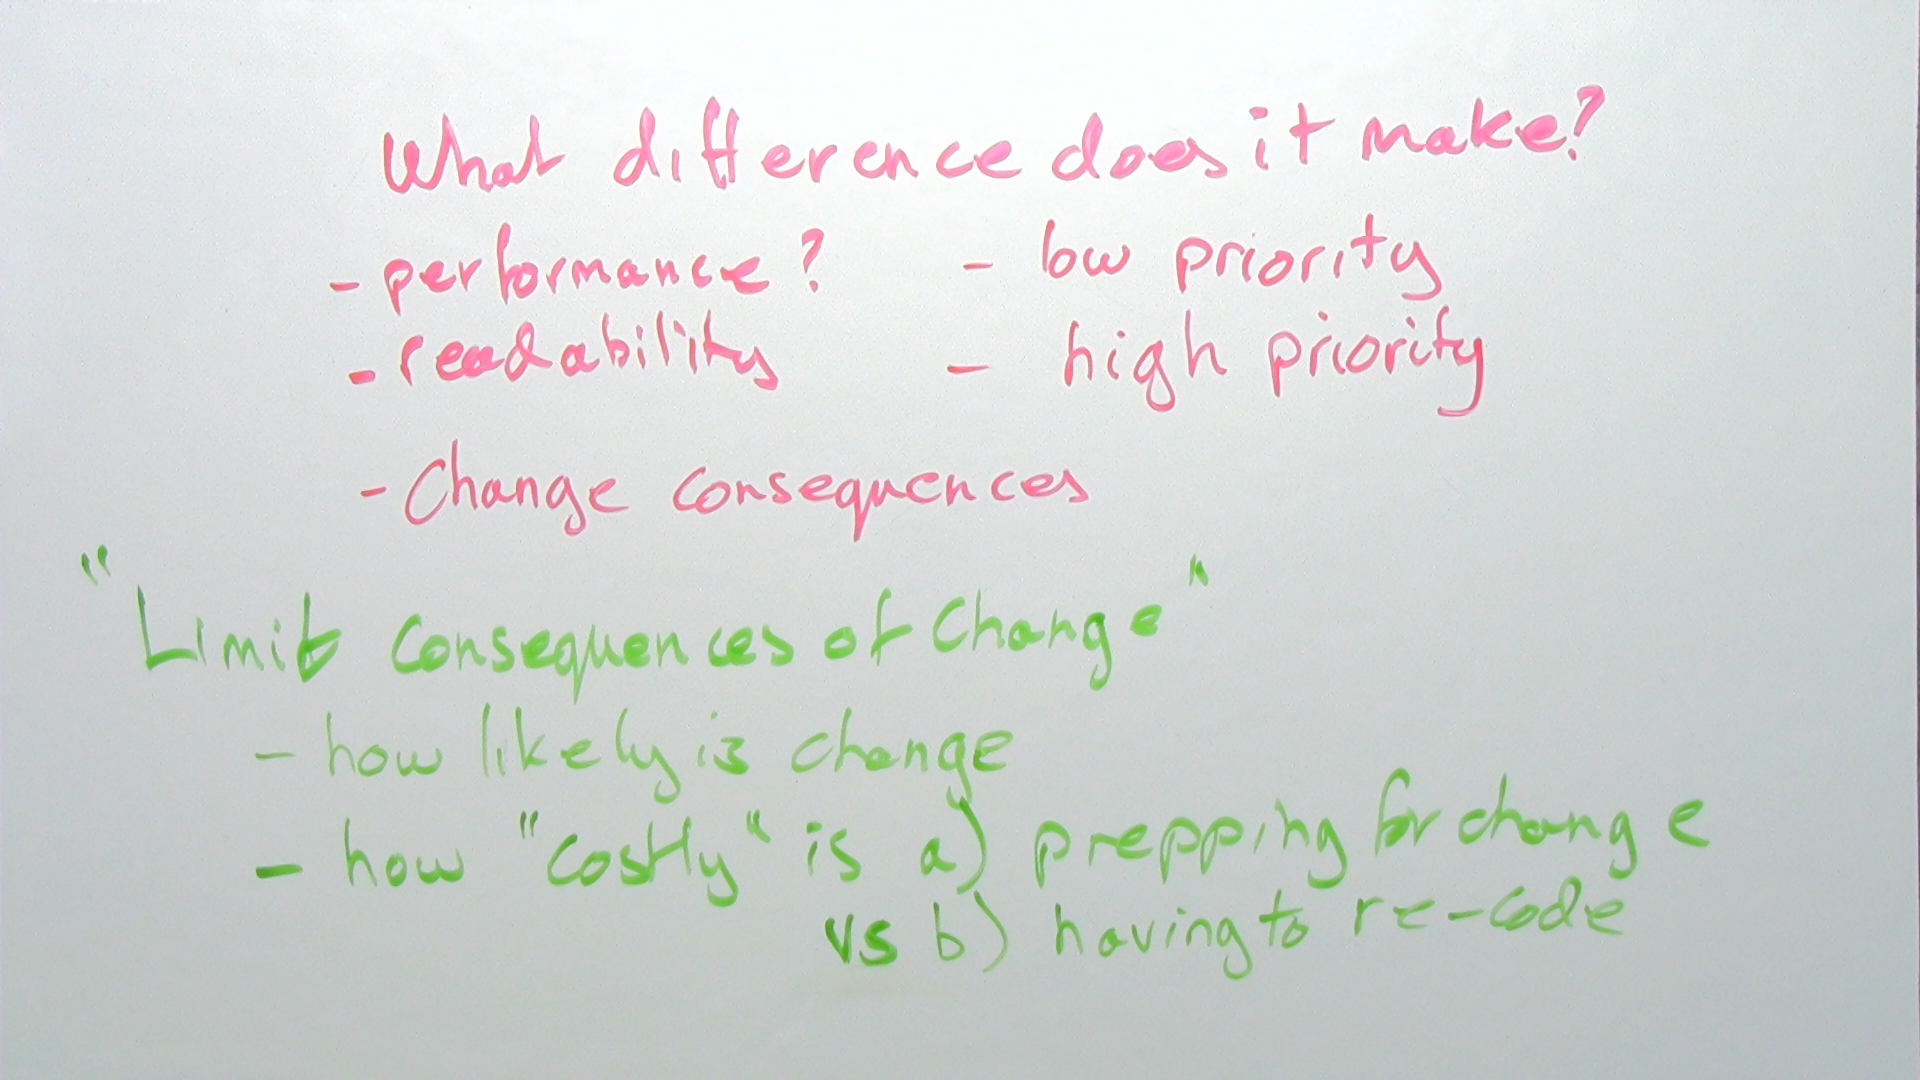 What difference does it make?
- performance? - low priority
- readability - high priority
- Change consequences
"Limit consequences of Change"
- how likely is change
- how "costly" is a) prepping for change
vs b) having to re-code